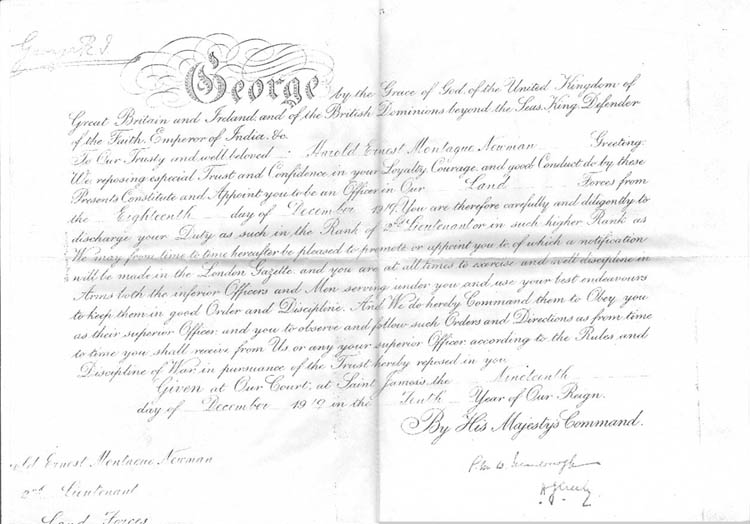 George R.I.
George by the Grace of God, of the United Kingdom of
Great Britain and Ireland, and of the British Dominions beyond the Seas, King, Defender
of the Faith, Emperor of India, &c.
To Our Trusty and well beloved Harold Ernest Montague Newman Greeting:
We, reposing especial Trust and Confidence in your Loyalty, Courage, and good Conduct, do by these
Presents Constitute and Appoint you to be an Officer in Our Land Forces from
the Eighteenth day of December 1919. You are therefore carefully and diligently to
discharge your Duty as such in the Rank of 2nd Lieutenant or in such higher Rank as
We may from time to time hereafter be pleased to promote or appoint you to, of which a notification
will be made in the London Gazette, and you are at all times to exercise and well discipline in
Arms both the inferior Officers and Men serving under you and use your best endeavours
to keep them in good Order and Discipline. And We do hereby Command them to Obey you
as their superior Officer, and you to observe and follow such Orders and Directions as from time
to time you shall receive from Us, or any your superior Officer, according to the Rules and
Discipline of War, in pursuance of the Trust hereby reposed in you.
Given at Our Court, at Saint James's, the Nineteenth
day of December 1919 in the Tenth Year of Our Reign.
By His Majesty's Command.
old Ernest Montague Newman
2nd Lieutenant
Land Forces